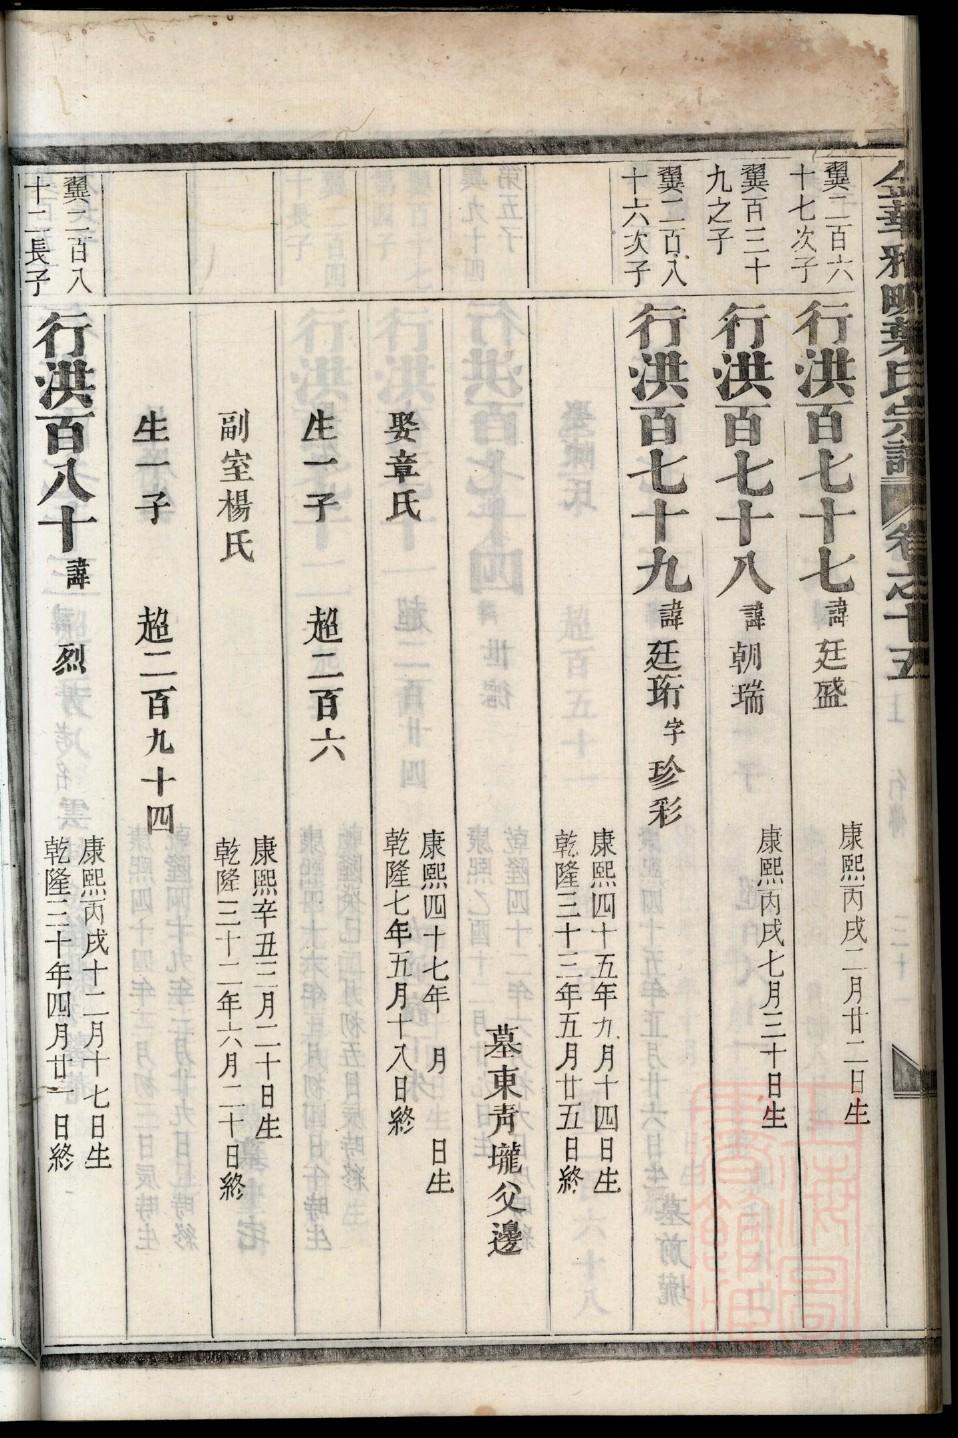 金華雅畈葉氏宗譜 卷之十五
翼二百六
十七次子
行洪百七十七 諱廷盛
康熙丙戌二月廿二日生
翼百三十
九之子
行洪百七十八 諱朝瑞
康熙丙戌七月三十日生
翼二百八
十六次子
行洪百七十九 諱廷珩 字珍彩
康熙四十五年九月十四日生
乾隆三十三年五月廿五日終
墓東青壠父邊
娶章氏
康熙四十七年 月 日生
乾隆七年五月十八日終
生一子 超二百六
副室楊氏
康熙辛丑三月二十日生
乾隆三十二年六月二十日終
生一子 超二百九十四
翼二百八
十二長子
行洪百八十 諱烈
康熙丙戌十二月十七日生
乾隆三十年四月廿一日終